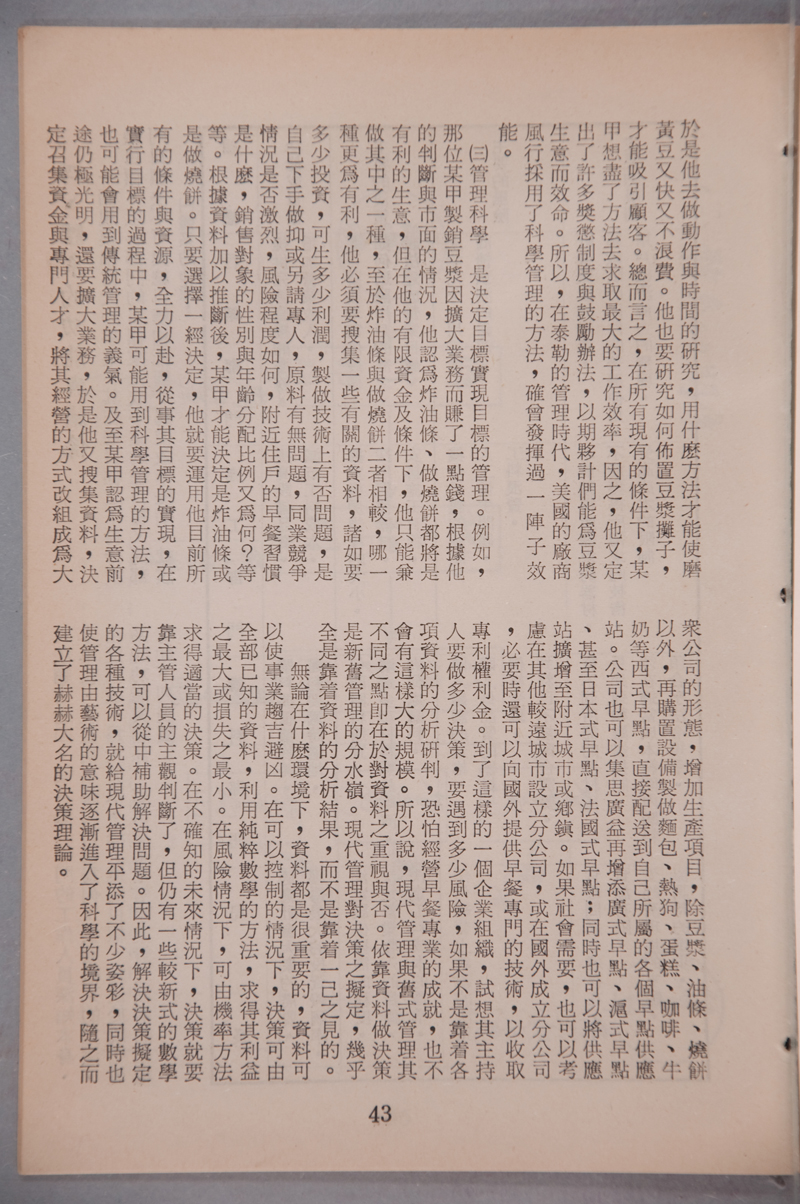 於是他去做動作與時間的研究，用什麽方法才能使磨
黃豆又快又不浪費。他也要研究如何佈置豆漿攤子，
才能吸引顧客。總而言之，在所有現有的條件下，某
甲想盡了方法去求取最大的工作效率，因之，他又定
出了許多獎懲制度與鼓勵辦法，以期夥計們能爲豆漿
生意而效命。所以，在泰勒的管理時代，美國的廠商
風行採用了科學管理的方法，確曾發揮過一陣子效
能。
㈢管理科學　是決定目標實現目標的管理。例如，
那位某甲製銷豆漿因擴大業務而賺了一點錢，根據他
的判斷與市面的情況，他認爲炸油條、做燒餅都將是
有利的生意，但在他的有限資金及條件下，他只能兼
做其中之一種，至於炸油條與做燒餅二者相較，哪一
種更爲有利，他必須要搜集一些有關的資料，諸如要
多少投資，可生多少利潤，製做技術上有否問題，是
自己下手做抑或另請專人，原料有無問題，同業競爭
情況是否激烈，風險程度如何，附近住戶的早餐習慣
是什麽，銷售對象的性別與年齡分配比例又爲何？等
等。根據資料加以推斷後，某甲才能決定是炸油條或
是做燒餅。只要選擇一經決定，他就要運用他目前所
有的條件與資源，全力以赴，從事其目標的實現，在
實行目標的過程中，某甲可能用到科學管理的方法，
也可能會用到傳統管理的義氣。及至某甲認爲生意前
途仍極光明，還要擴大業務，於是他又搜集資料，決
定召集資金與專門人才，將其經營的方式改組成爲大
衆公司的形態，增加生產項目，除豆漿、油條、燒餅
以外，再購置設備製做麵包、熱狗、蛋糕、咖啡、牛
奶等西式早點，直接配送到自己所屬的各個早點供應
站。公司也可以集思廣益再增添廣式早點、滬式早點
、甚至日本式早點、法國式早點；同時也可以將供應
站擴增至附近城市或鄉鎭。如果社會需要，也可以考
慮在其他較遠城市設立分公司，或在國外成立分公司
，必要時還可以向國外提供早餐專門的技術，以收取
專利權利金。到了這樣的一個企業組織，試想其主持
人要做多少決策，要遇到多少風險，如果不是靠着各
項資料的分析研判，恐怕經營早餐專業的成就，也不
會有這樣大的規模。所以說，現代管理與舊式管理其
不同之點卽在於對資料之重視與否。依靠資料做決策
是新舊管理的分水嶺。現代管理對決策之擬定，幾乎
全是靠着資料的分析結果，而不是靠着一己之見的。
無論在什麽環境下，資料都是很重要的，資料可
以使事業趨吉避凶。在可以控制的情況下，決策可由
全部已知的資料，利用純粹數學的方法，求得其利益
之最大或損失之最小。在風險情況下，可由機率方法
求得適當的決策。在不確知的未來情況下，決策就要
靠主管人員的主觀判斷了，但仍有一些較新式的數學
方法，可以從中補助解決問題。因此，解決決策擬定
的各種技術，就給現代管理平添了不少姿彩，同時也
使管理由藝術的意味逐漸進入了科學的境界，隨之而
建立了赫赫大名的決策理論。
43